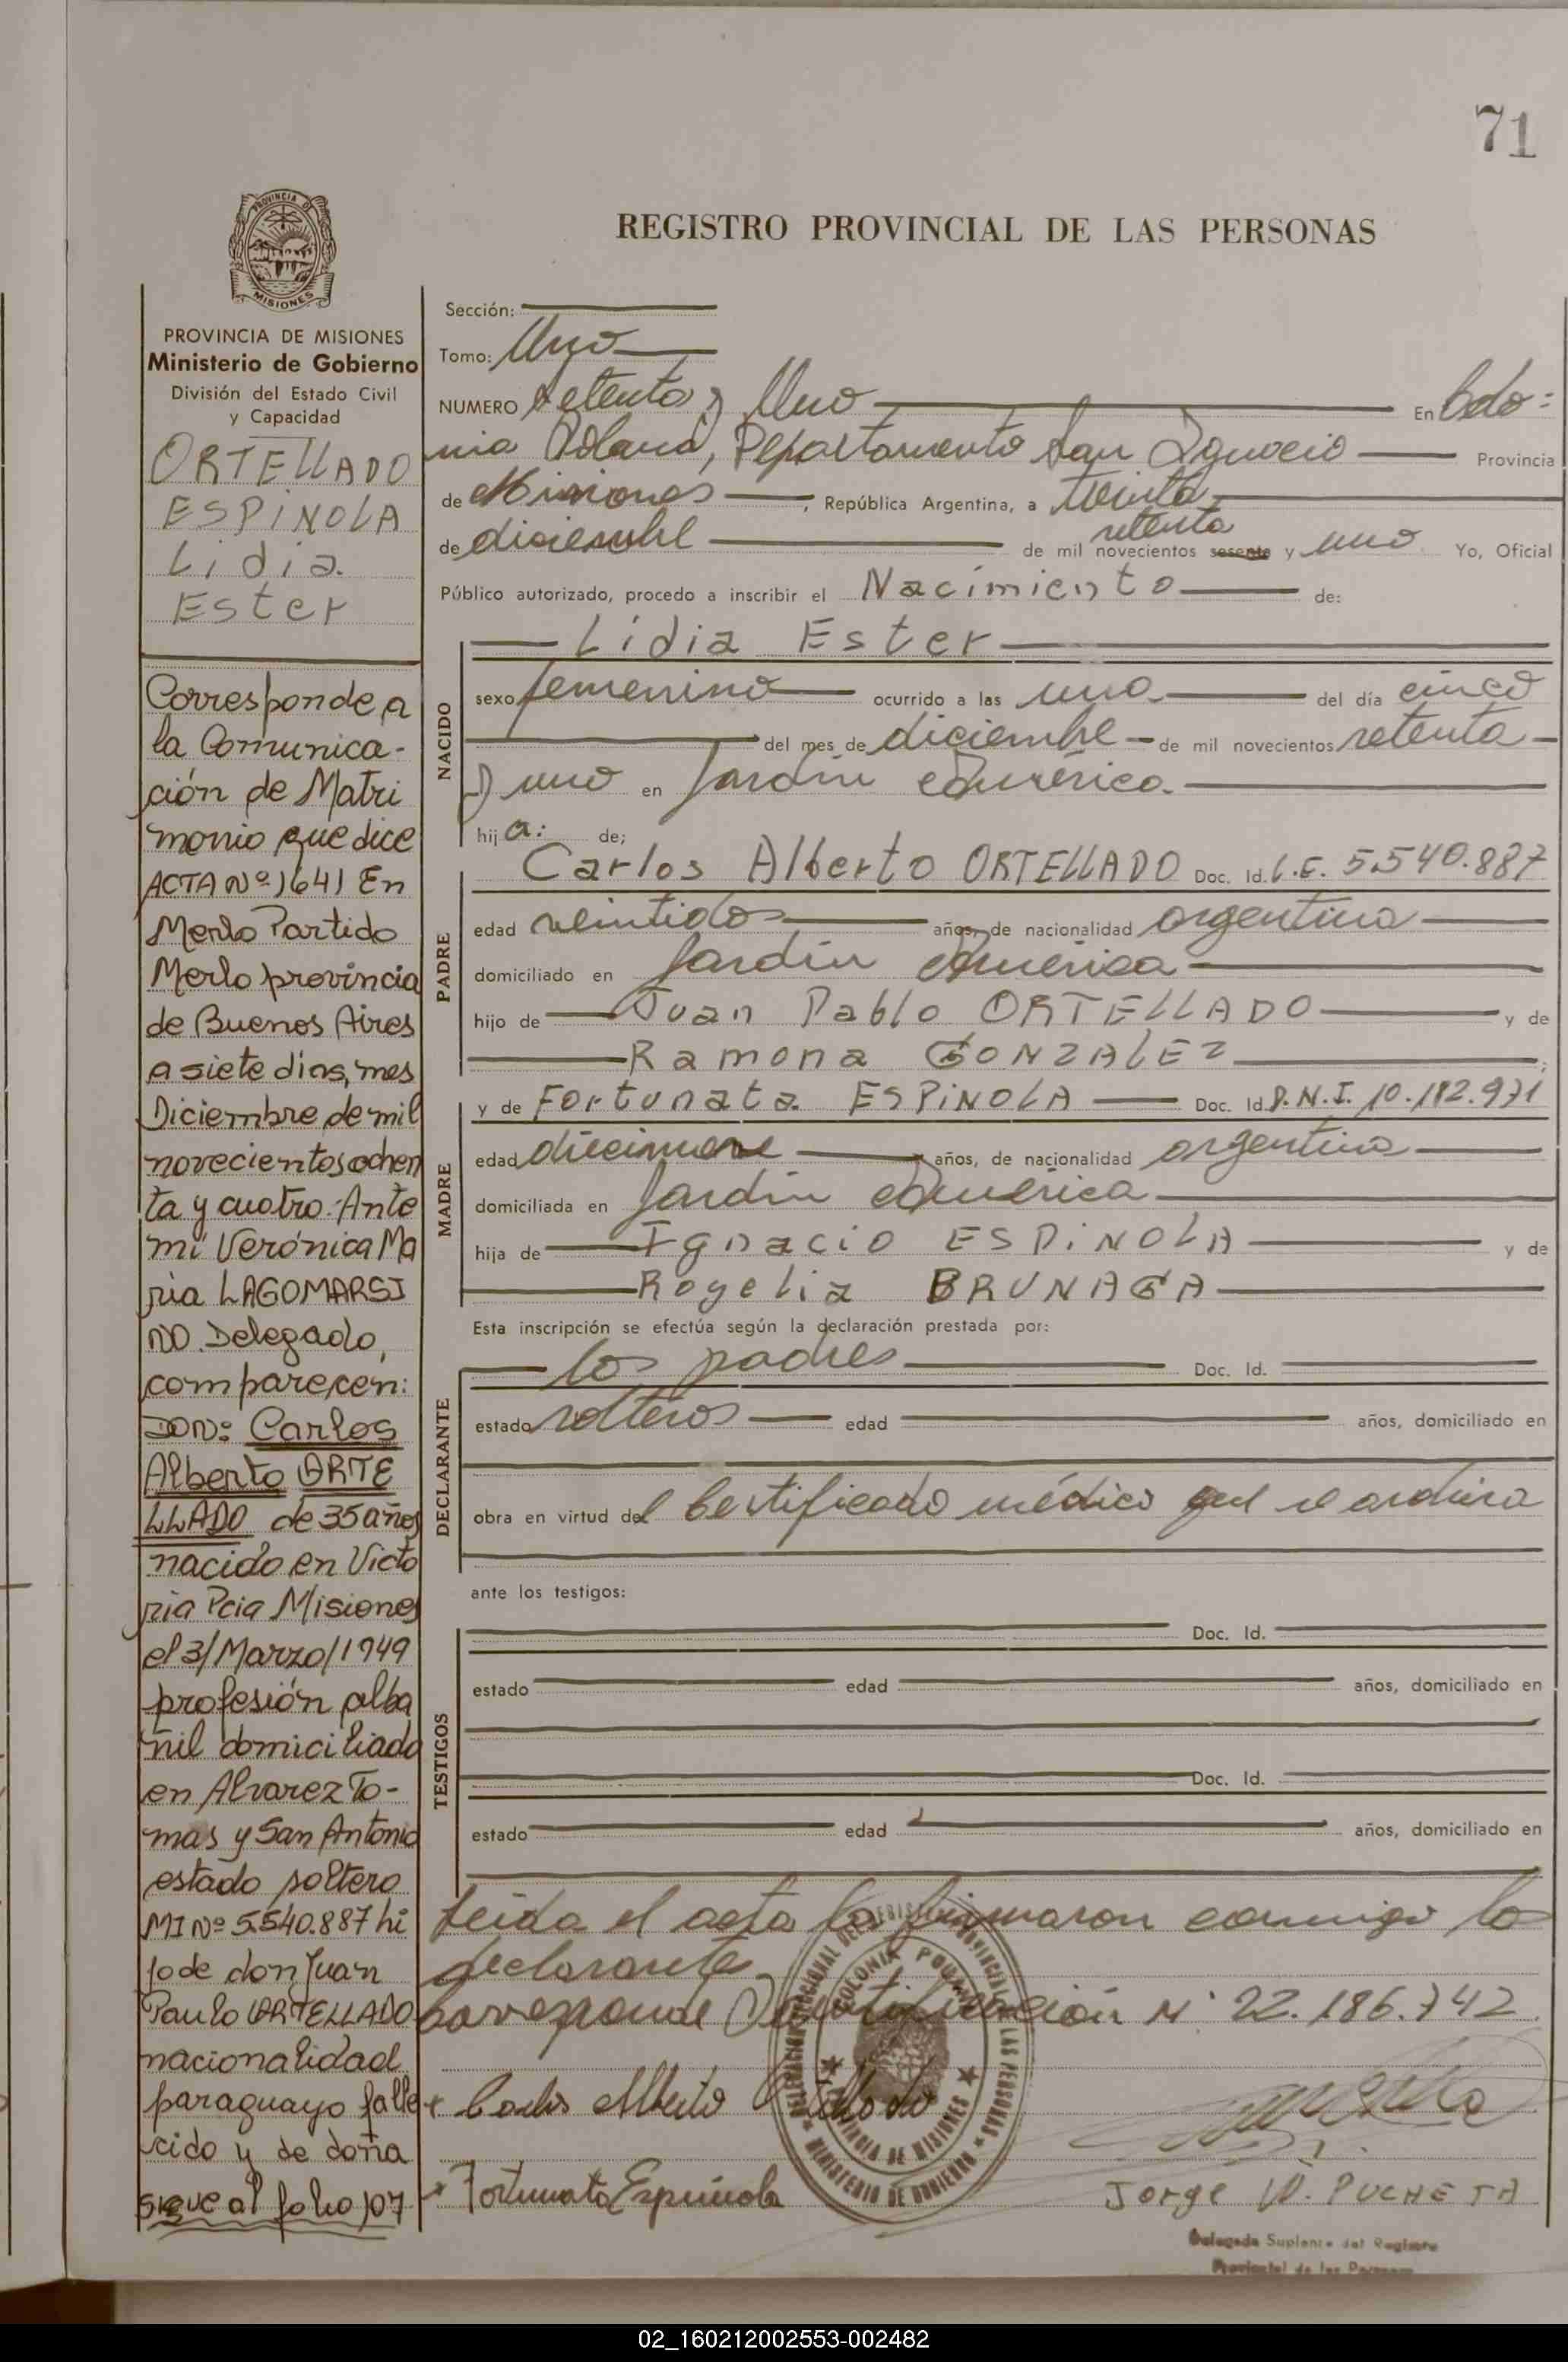 71
REGISTRO PROVINCIAL DE LAS PERSONAS
PROVINCIA DE MISIONES
Ministerio de Gobierno
División del Estado Civil
y Capacidad
ORTELLADO
ESPINOLA
Lidia
Ester
Corresponde a
la Comunica-
ción de Matri
monio que dice
ACTA Nº 1641 En
Merlo Partido
Merlo provincia
de Buenos Aires
a siete dias, mes
Diciembre de mil
novecientos ochen
ta y cuatro. Ante
mi Verónica Ma
ria LAGOMARSI
NO. Delegado,
comparecen:
DON: Carlos
Alberto ORTE
LLADO de 35 años
nacido en Victo
ria Pcia Misiones
el 3/Marzo/1949
profesión alba
ñil domiciliado
en Alvarez To-
mas y San Antonio
estado soltero
MI Nº 5.540.887 hi
jo de don Juan
Paulo ORTELLADO
nacionalidad
paraguayo falle
cido y de doña
sigue al folio 107
Sección:
Tomo: Uno
NUMERO setenta y Uno En Colo=
nia Polana, Departamento San Ignacio Provincia
de Misiones, República Argentina, a treinta
setenta
de diciembre de mil novecientos sesenta y uno Yo, Oficial
Público autorizado, procedo a inscribir el Nacimiento de:
Lidia Ester
NACIDO
sexo femenino ocurrido a las una del día cinco
del mes de diciembre de mil novecientos setenta
y uno en Jardín América
hija: de;
PADRE
Carlos Alberto ORTELLADO Doc. Id. L.E. 5.540.887
edad veintidos años, de nacionalidad argentina
domiciliado en Jardín América
hijo de Juan Pablo ORTELLADO y de
Ramona GONZALEZ
MADRE
y de Fortunata ESPINOLA Doc. Id. D.N.I. 10.182.971
edad diecinueve años, de nacionalidad argentina
domiciliada en Jardín América
hija de Ignacio ESPINOLA y de
Rogelia BRUNAGA
Esta inscripción se efectúa según la declaración prestada por:
DECLARANTE
los padres Doc. Id.
estado solteros edad años, domiciliado en
obra en virtud del Certificado médico que se archiva
ante los testigos:
TESTIGOS
Doc. Id.
estado edad años, domiciliado en
Doc. Id.
estado edad años, domiciliado en
Leida el acta la firmaron conmigo los
declarante
Corresponde Identificación Nº 22.186.742
Carlos Alberto Ortellado
Fortunata Espínola
Jorge W. PUCHETA
Delegado Suplente del Registro
Provincial de las Personas
02_160212002553-002482